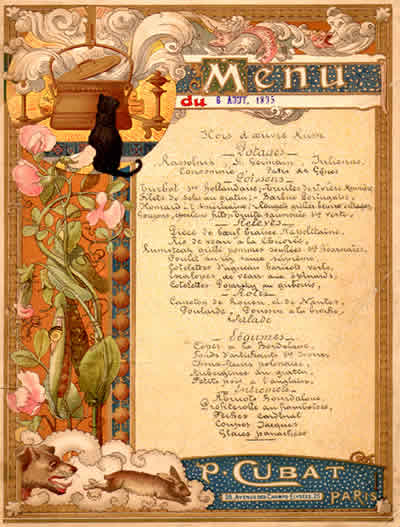 Menu
du 6 AOUT. 1895
Hors d'œuvre Russe
Potages
Rassolnik St Germain, Julienne,
Consommé Pates de Gênes
Poissons
Turbot sce Hollandaise, Truites de rivière Meunière
Filets de sole au gratin, Barbue Portugaise,
Homard à l'Américaine, Rougets grillés beurre
Goujons, frits, Truite saumonée sce verte,
Relevés
Pièce de bœuf braisé Napolitaine
Ris de veau à la Chicorée,
grillé pommes soufflées sce Béarnaise,
Poulet au riz sauce suprême,
Cotelettes d'agneau haricots verts,
Escalopes de veau aux épinards,
Cotelettes Pojarsky au
Rotis
Caneton de Rouen, et de Nantes,
Poularde, Poussin à la broche,
Salade
Légumes
Cèpes à la Bordelaise,
Fonds d'artichauts
Choux-fleurs polonaise,
Aubergines au gratin,
Petits pois à l'anglaise,
Entremets
Abricots Bourdaloue,
Profiterolle au framboises,
Pêches cardinal
Coupes Jacques
Glaces panachées
P. CUBAT
25, AVENUE DES CHAMPS ELYSÉES, 25
PARIS